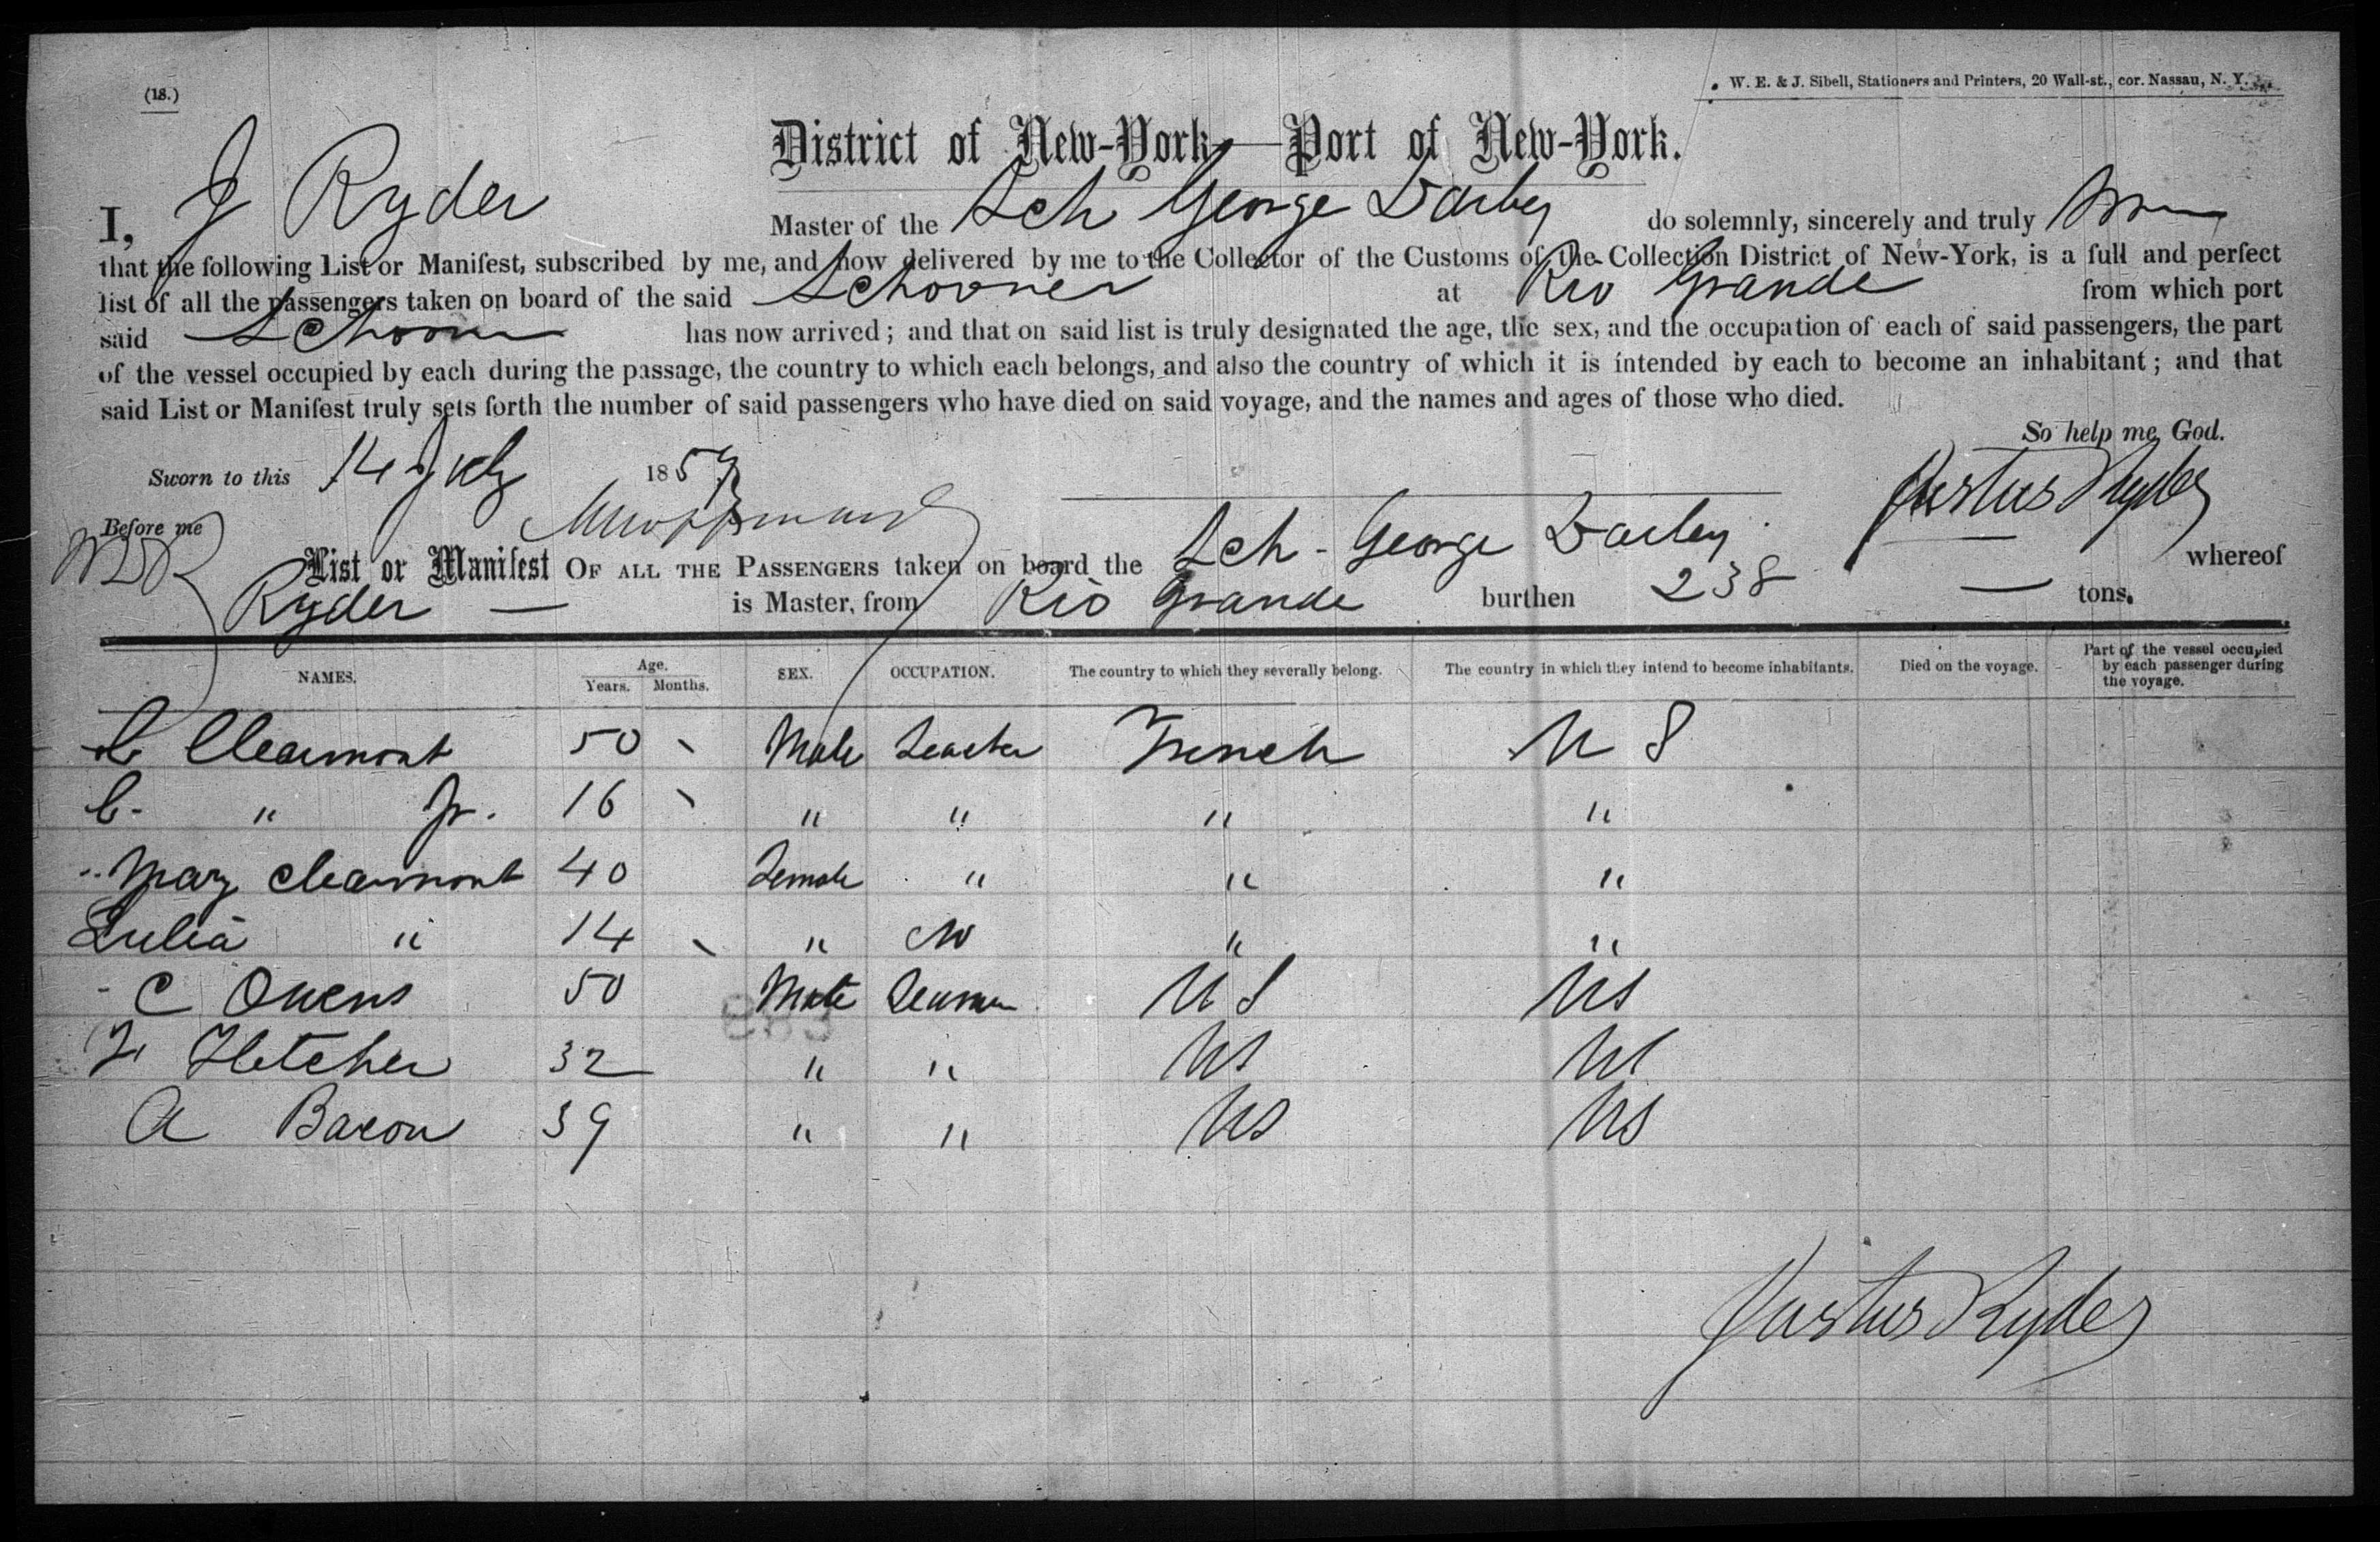 (18.)
W. E. & J. Sibell, Stationers and Printers, 20 Wall-st., cor. Nassau, N. Y.
District of New-York—Port of New-York.
I, J Ryder Master of the Sch George Darby do solemnly, sincerely and truly
that the following List or Manifest, subscribed by me, and now delivered by me to the Collector of the Customs of the Collection District of New-York, is a full and perfect
list of all the passengers taken on board of the said Schooner at Rio Grande from which port
said Schooner has now arrived; and that on said list is truly designated the age, the sex, and the occupation of each of said passengers, the part
of the vessel occupied by each during the passage, the country to which each belongs, and also the country of which it is intended by each to become an inhabitant; and that
said List or Manifest truly sets forth the number of said passengers who have died on said voyage, and the names and ages of those who died.
So help me God.
Sworn to this 14 July 1859
Justus Ryder
Before me
List or Manifest OF ALL THE PASSENGERS taken on board the Sch - George Darby whereof
Ryder — is Master, from Rio Grande burthen 238 — tons.
NAMES. Age. Years. Months. SEX. OCCUPATION. The country to which they severally belong. The country in which they intend to become inhabitants. Died on the voyage. Part of the vessel occupied by each passenger during the voyage.
C Clearmont 50 Male Teacher French U S
C. " Jr. 16 " " " "
Mary Clearmont 40 Female " " "
Julia " 14 " no " "
C Owens 50 Male Seaman U S US
F Fletcher 32 " " US US
A Bacon 39 " " US US
Justus Ryder